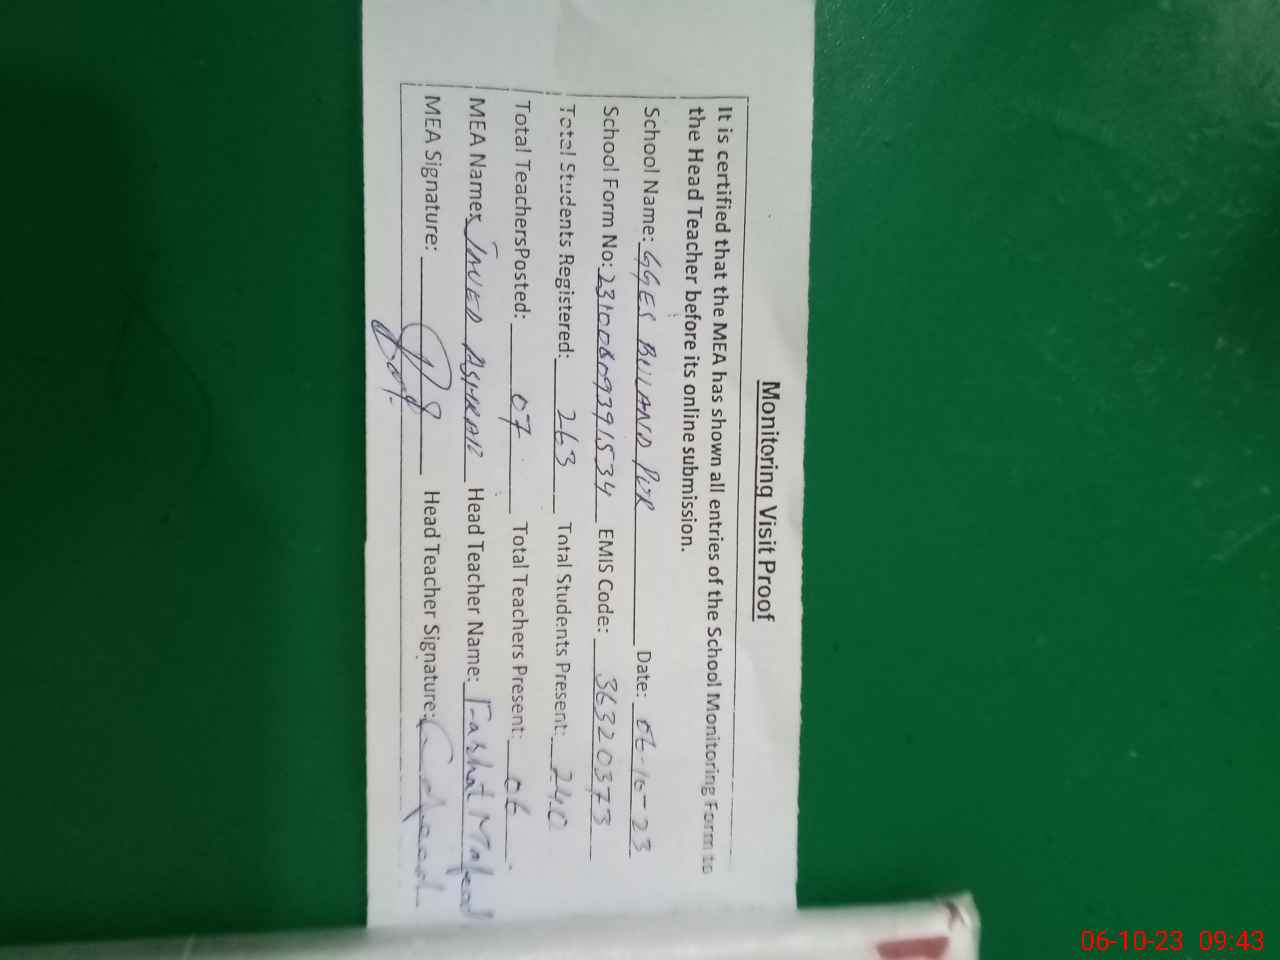 Monitoring Visit Proof
It is certified that the MEA has shown all entries of the School Monitoring Form to
the Head Teacher before its online submission.
School Name: GGES BULAND PUR Date: 06-10-23
School Form No: EMIS Code: 36320373
Total Students Registered: 263 Total Students Present: 240
Total TeachersPosted: 07 Total Teachers Present: 06
MEA Name: JAVED ASHRAF Head Teacher Name:
MEA Signature: Head Teacher Signature:
06-10-23 09:43